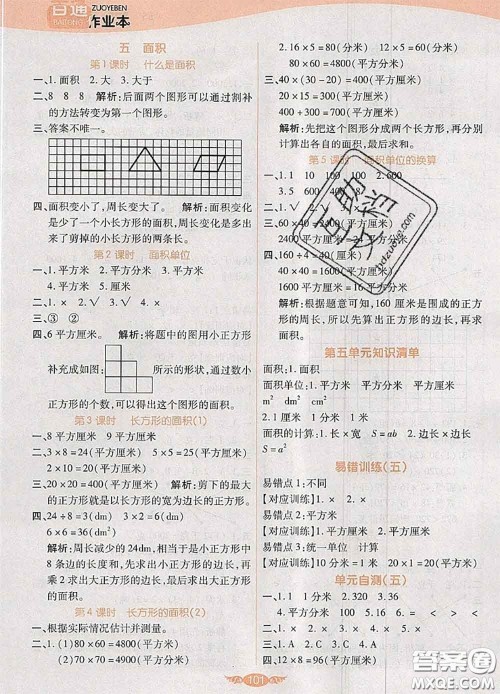 百通
BAITONG
ZUOYEBEN
作业本
五 面积
第1课时 什么是面积
一、1. 面积 2. 大 3. 大于
二、8 8 8 解析:后面两个图形可以通过割补
的方法转变为第一个图形。
三、答案不唯一。
四、面积变小了,周长变大了。 解析:面积变化
是少了一个小长方形的面积,周长变化是多出
来了剪掉的小长方形的两条长。
第2课时 面积单位
一、1. 平方米 2. 平方厘米 3. 平方分米
4. 平方米 5. 厘米
二、1. × 2. √ 3. × 4. √
三、③ ②
四、6平方厘米。 解析:将题中的图用小正方形
补充成如图:所示的形状,通过数小
正方形的个数,可以得出涂色图形的面积。
第3课时 长方形的面积(1)
一、8平方厘米 9平方厘米
二、3×8=24(平方米) 5×5=25(平方米)
2×10=20(平方厘米)
三、4×4=16(平方厘米) 解析:剪下的最大
的正方形就是以长方形的宽为边长的正方形。
四、24÷8=3(dm) 3×2=6(dm)
6×6=36(dm²)
解析:周长减少的24dm,相当于是小正方形中
8条边的长度和,先求出小正方形的边长,再
乘2求出大正方形的边长,最后求出大正方形
的面积。
第4课时 长方形的面积(2)
一、根据实际情况估计并测量。
二、(1)80×60=4800(平方米)
(2)70×70=4900(平方米)
2. 16×5=80(分米) 12×5=60(分米)
80×60=4800(平方分米)
三、40×(30-20)=400(平方厘米)
15×20=300(平方厘米)
400+300=700(平方厘米)
解析:先把这个图形分成两个长方形,再分别
计算出各自的面积,最后求和。
第5课时 面积单位的换算
一、1. 1 10 100 100 600
二、1. × 2. √ 3. √
三、60×40=2400(平方分米)
2400平方分米=24平方米
四、160÷4=40(米)
40×40=1600(平方米)
解析:根据题意可知,160厘米是围成的正方形
的周长,所以先算出正方形的边长,再求
面积。
第五单元知识清单
面积:1. 面积
面积单位:1. 平方米 平方分米 平方厘米
m² dm² cm²
2. 1厘米 1分米 1米
面积的计算:长×宽 S=ab 边长×边长
S=a²
易错训练(五)
易错点1:不同
【对应训练】1. ×
易错点2:面积
【对应训练】1. 平方厘米 2. 厘米
易错点3:统一单位 计算
【对应训练】10厘米=1分米 20×1=20(平方
分米)
单元自测(五)
一、1. 面积 2. 320 3. 36
4. 平方分米 100 5. 16 6.
二、1. × 2. × 3. √ 4. ×
四、12×8=96(平方厘米)
作业帮
hdzuoye.com
101
答案圈
MXQE.COM